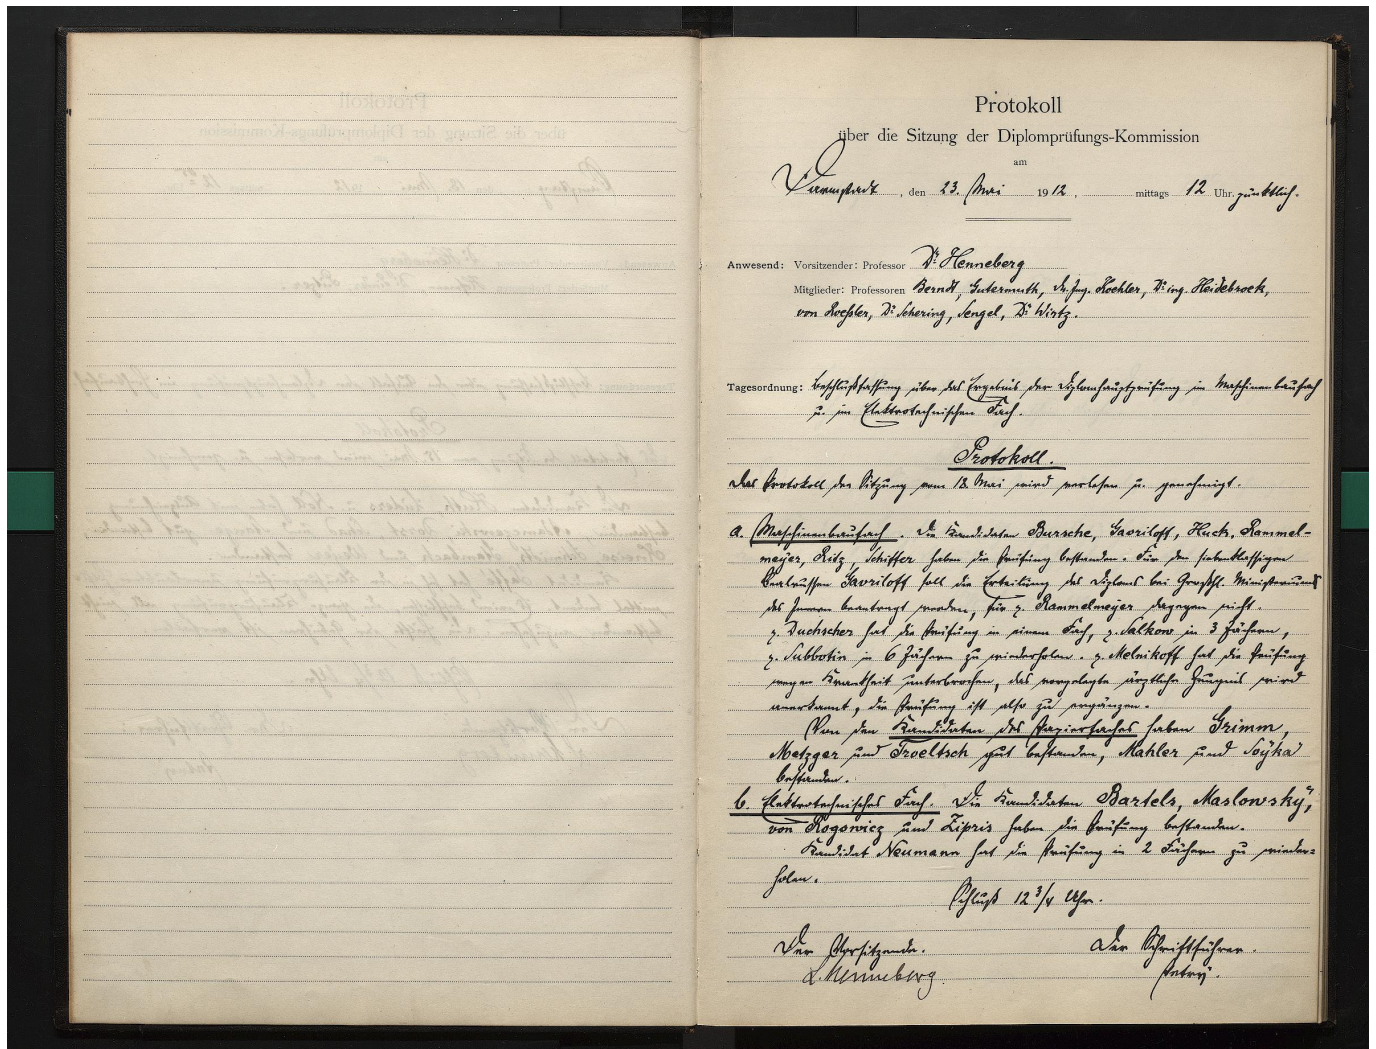 Protokoll
über die Sitzung der Diplomprüfungs-Kommission
am
Darmstadt, den 23. Mai 1912, mittags 12 Uhr. pünktlich.
Anwesend: Vorsitzender: Professor Dr. Henneberg
Mitglieder: Professoren Berndt, Gutermuth, Dr. Ing. Koehler, Dr. ing. Heidebroek,
von Roeßler, Dr. Schering, Sengel, Dr. Wirtz.
Tagesordnung: Beschlußfassung über das Ergebnis der Diplomhauptprüfung im Maschinenbaufach
u. im Elektrotechnischen Fach.
Protokoll.
Das Protokoll der Sitzung vom 18. Mai wird verlesen u. genehmigt.
a. Maschinenbaufach. Die Kandidaten Bursche, Gavriloff, Huck, Rammel-
meyer, Ritz, Schiffer haben die Prüfung bestanden. Für den siebenklassigen
Realrussen Gavriloff soll die Erteilung des Diploms bei Großhl. Ministerium
des Innern beantragt werden, für H. Rammelmeyer dagegen nicht.
H. Duchscher hat die Prüfung in einem Fach, H. Salkow in 3 Fächern,
H. Subbotin in 6 Fächern zu wiederholen. H. Melnikoff hat die Prüfung
wegen Krankheit unterbrochen, das vorgelegte ärztliche Zeugnis wird
anerkannt, die Prüfung ist also zu ergänzen.
Von den Kandidaten des Papierfaches haben Grimm,
Metzger und Troeltsch gut bestanden, Mahler und Soÿka
bestanden.
b. Elektrotechnisches Fach. Die Kandidaten Bartels, Maslowskÿ,
von Rogowicz und Zipris haben die Prüfung bestanden.
Kandidat Neumann hat die Prüfung in 2 Fächern zu wieder=
holen.
Schluß 12 3/4 Uhr.
Der Vorsitzende. Der Schriftführer.
L. Henneberg Petrÿ.